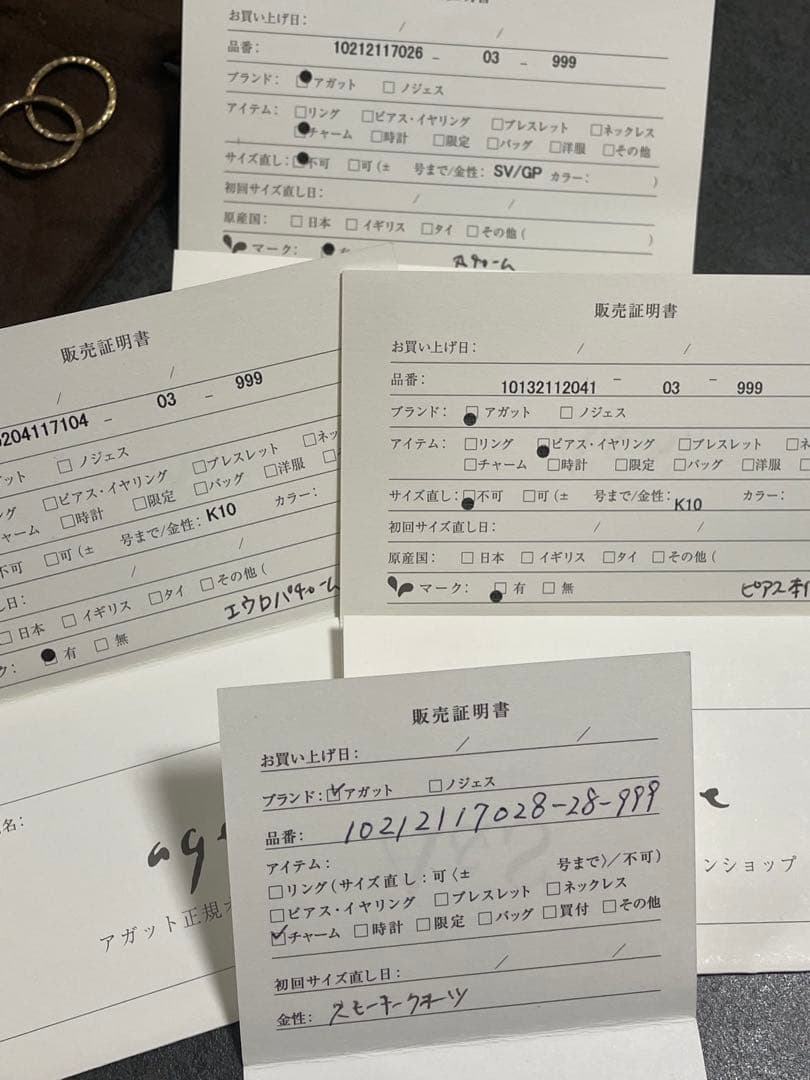 お買い上げ日: / /
品番: 10212117026 - 03 - 999
ブランド: □アガット □ノジェス
アイテム: □リング □ピアス・イヤリング □ブレスレット □ネックレス
□チャーム □時計 □限定 □バッグ □洋服 □その他
サイズ直し: □不可 □可(± 号まで/金性: SV/GP カラー: )
初回サイズ直し日: / /
原産国: □日本 □イギリス □タイ □その他( )
マーク: □有
販売証明書
/ /
0204117104 - 03 - 999
ット □ノジェス
ング □ピアス・イヤリング □ブレスレット □ネッ
チャーム □時計 □限定 □バッグ □洋服
不可 □可(± 号まで/金性: K10 カラー:
し日: / /
□日本 □イギリス □タイ □その他(
エウロパチャーム
ク: □有 □無
販売証明書
お買い上げ日: / /
品番: 10132112041 - 03 - 999
ブランド: □アガット □ノジェス
アイテム: □リング □ピアス・イヤリング □ブレスレット □ネ
□チャーム □時計 □限定 □バッグ □洋服
サイズ直し: □不可 □可(± 号まで/金性: K10 カラー:
初回サイズ直し日: / /
原産国: □日本 □イギリス □タイ □その他(
マーク: □有 □無 ピアス本
名:
ag
アガット正規
e
ンショップ
販売証明書
お買い上げ日: / /
ブランド: ☑アガット □ノジェス
品番: 10212117028-28-999
アイテム:
□リング(サイズ直し:可〈± 号まで〉/不可)
□ピアス・イヤリング □ブレスレット □ネックレス
☑チャーム □時計 □限定 □バッグ □買付 □その他
初回サイズ直し日: / /
金性: スモーキークオーツ